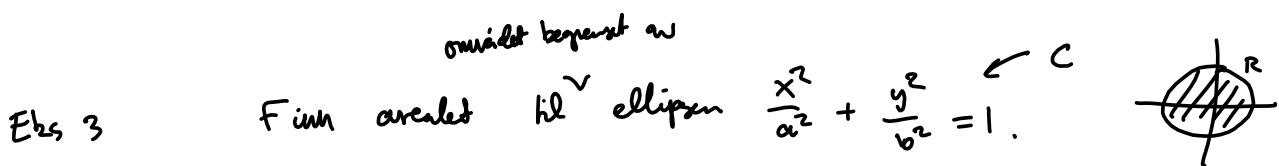 området begrenset av
Eks 3 Finn arealet til ellipsen x²/a² + y²/b² = 1. ← C R